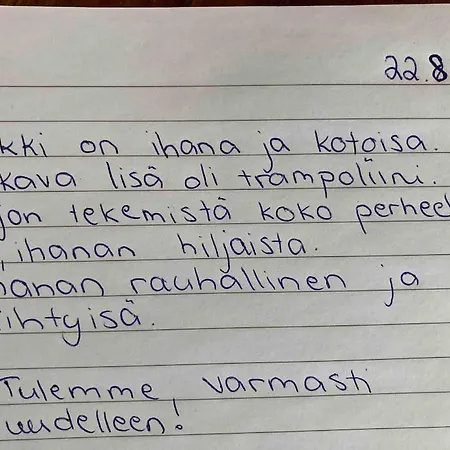 22.8
kki on ihana ja kotoisa.
kava lisä oli trampoliini.
jon tekemistä koko perheel
, ihanan hiljaista.
hanan rauhallinen ja
iihtyisä.
Tulemme varmasti
uudelleen!